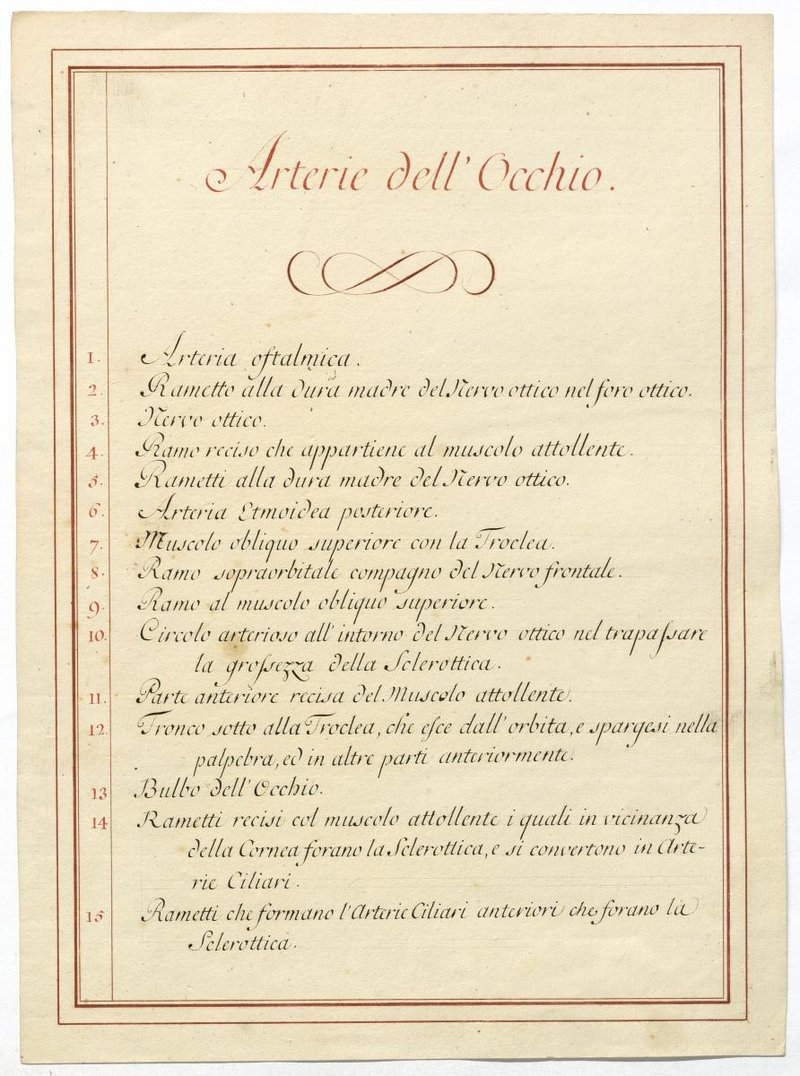 Arterie dell' Occhio.
1. Arteria oftalmica.
2. Rametto alla dura madre del Nervo ottico nel foro ottico.
3. Nervo ottico.
4. Ramo reciso che appartiene al muscolo attollente.
5. Rametti alla dura madre del Nervo ottico.
6. Arteria Etmoidea posteriore.
7. Muscolo obliquo superiore con la Troclea.
8. Ramo sopraorbitale compagno del Nervo frontale.
9. Ramo al muscolo obliquo superiore.
10. Circolo arterioso all' intorno del Nervo ottico nel trapaſsare
la groſsezza della Sclerottica.
11. Parte anteriore recisa del Muscolo attollente.
12. Tronco sotto alla Troclea, che eſce dall' orbita, e spargesi nella
palpebra, ed in altre parti anteriormente.
13 Bulbo dell' Occhio.
14 Rametti recisi col muscolo attollente i quali in vicinanza
della Cornea forano la Sclerottica, e si convertono in Arte-
rie Ciliari.
15 Rametti che formano l'Arterie Ciliari anteriori che forano la
Sclerottica.